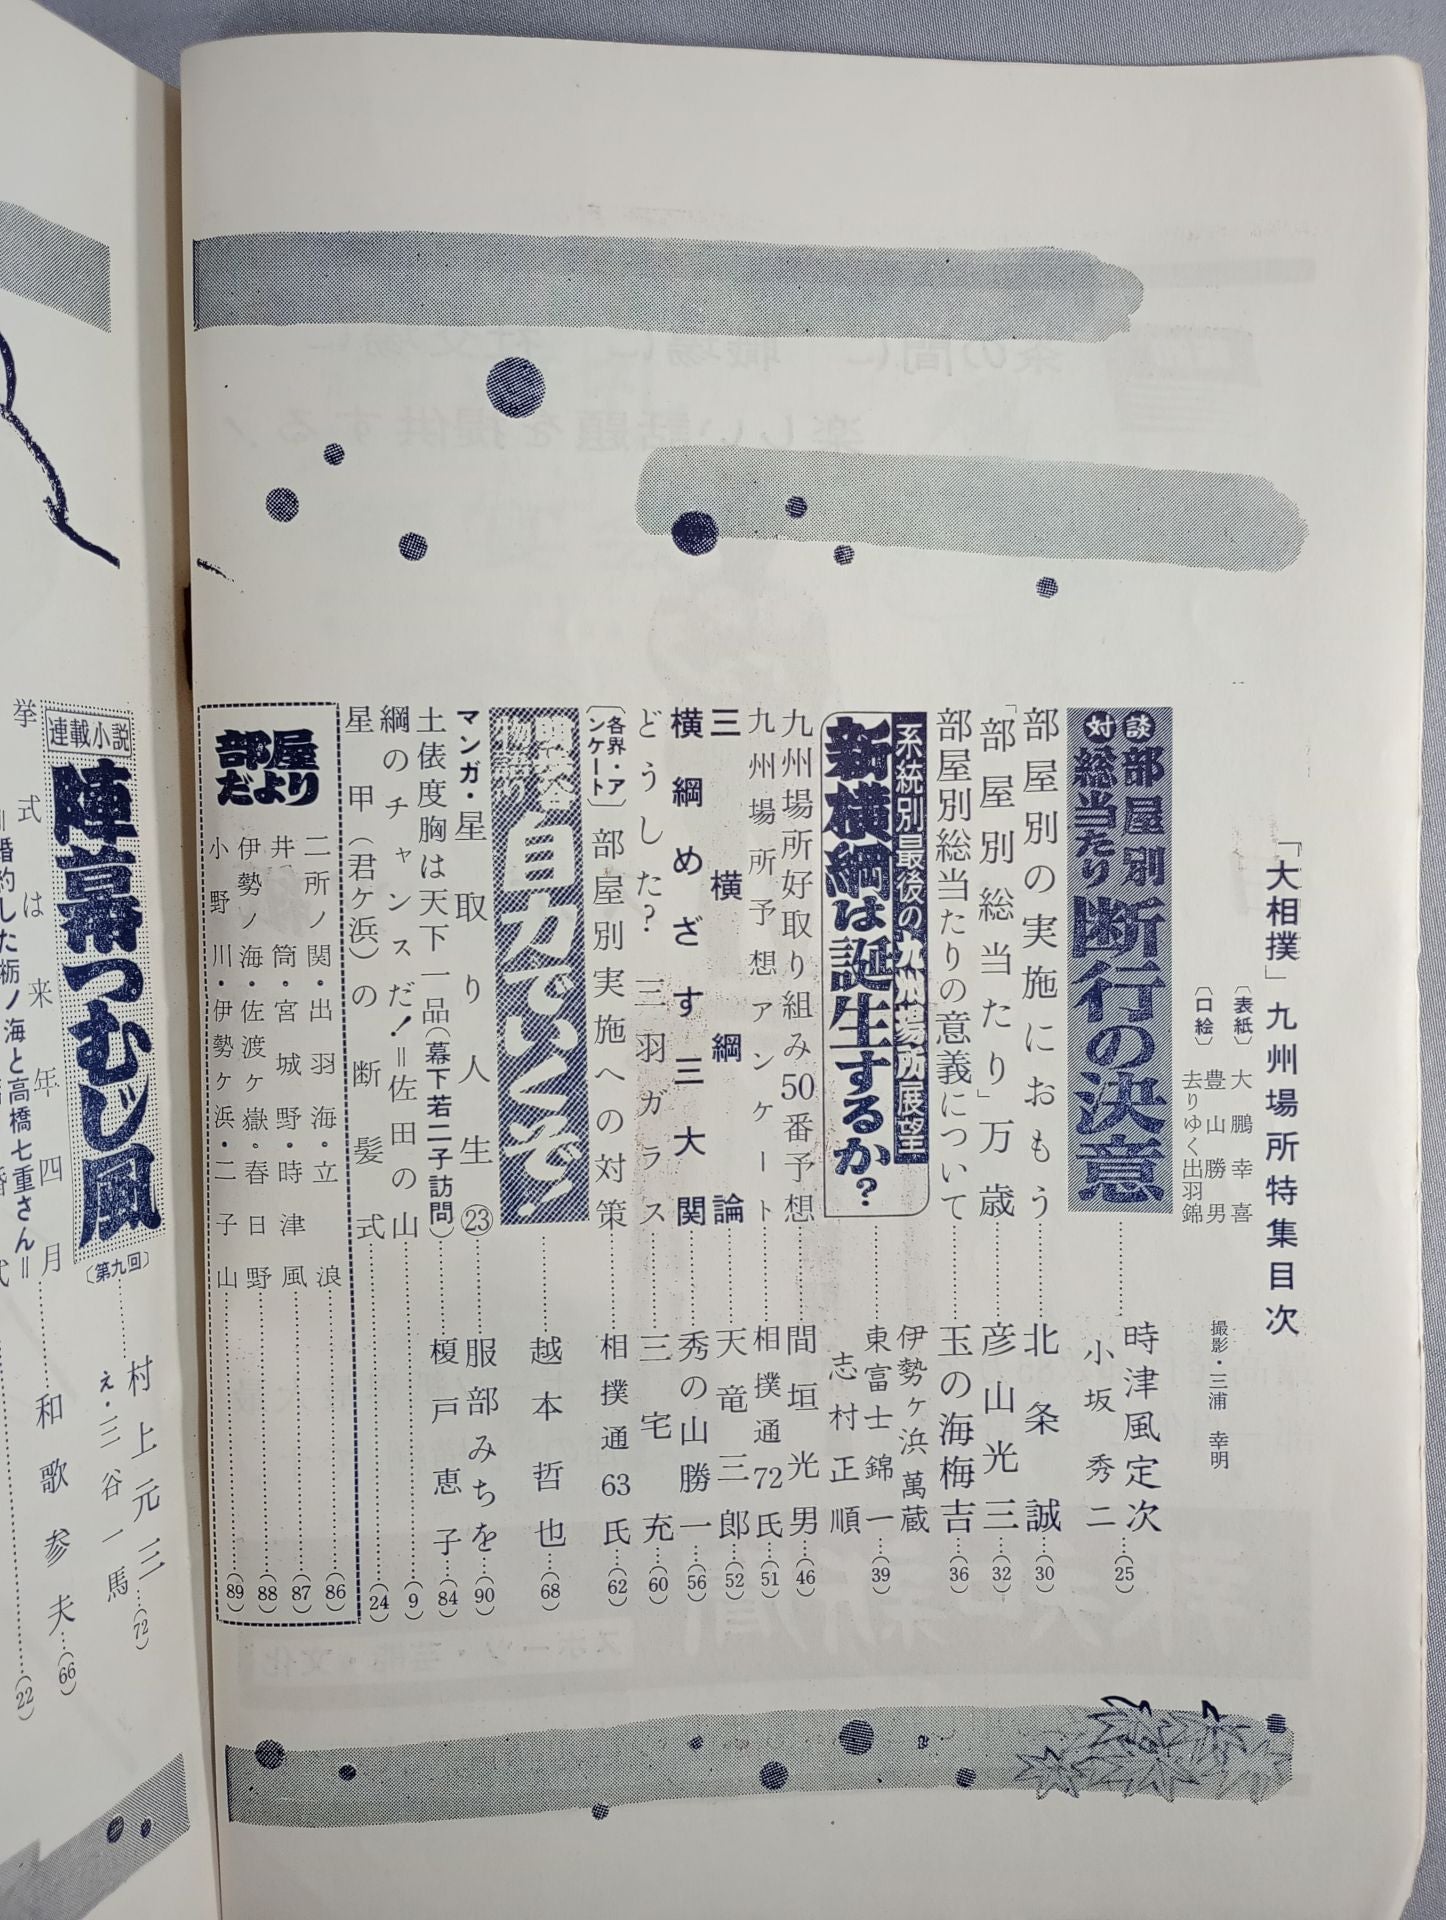 「大相撲」九州場所特集目次
〔表紙〕大鵬幸喜
豊山勝男
〔口絵〕去りゆく出羽錦
撮影・三浦幸明
対談 部屋別総当たり断行の決意……時津風定次 小坂秀二…(25)
部屋別の実施におもう……北条誠…(30)
「部屋別総当たり」万歳……彦山光三…(32)
部屋別総当たりの意義について……玉の海梅吉…(36)
系統別最後の九州場所展望
新横綱は誕生するか?……伊勢ヶ浜萬蔵 東富士錦一 志村正順…(39)
九州場所好取り組み50番予想……間垣光男…(46)
九州場所予想アンケート……相撲通72氏…(51)
三横綱論……天竜三郎…(52)
横綱めざす三大関……秀の山勝一…(56)
どうした?三羽ガラス……三宅充…(60)
〔各界・アンケート〕部屋別実施への対策……相撲通63氏…(62)
物語 自力でいくぞ!……越本哲也…(68)
マンガ・星取り人生㉓……服部みちを…(90)
土俵度胸は天下一品(幕下若二子訪問)……榎戸恵子…(84)
綱のチャンスだ!=佐田の山……(9)
星甲(君ヶ浜)の断髪式……(24)
部屋だより
二所ノ関・出羽海・立浪……(86)
井筒・宮城野・時津風……(87)
伊勢ノ海・佐渡ヶ嶽・春日野……(88)
小野川・伊勢ヶ浜・二子山……(89)
連載小説
陣幕つむじ風〔第九回〕……村上元三…(72)
え・三谷一馬
挙式は来年四月……和歌参夫…(66)
婚約した栃ノ海と高橋七重さん=
(22)